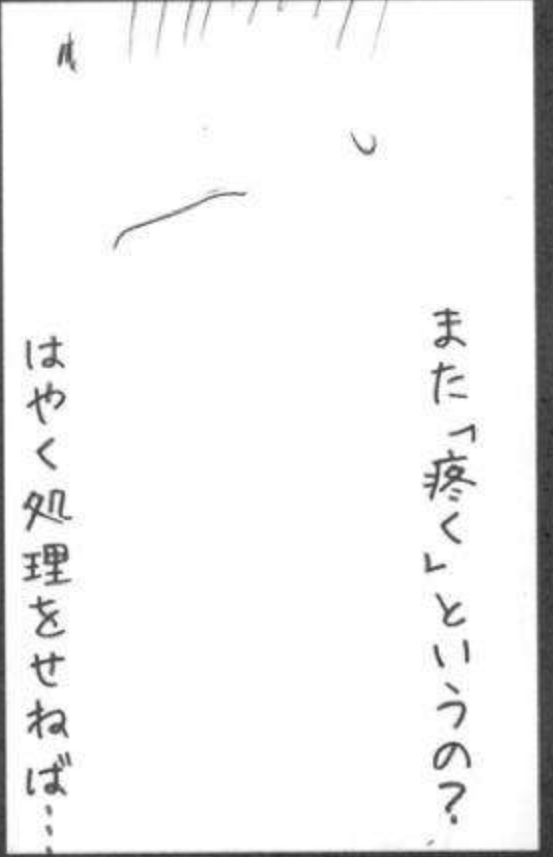 また「疼く」というの?
はやく処理をせねば…